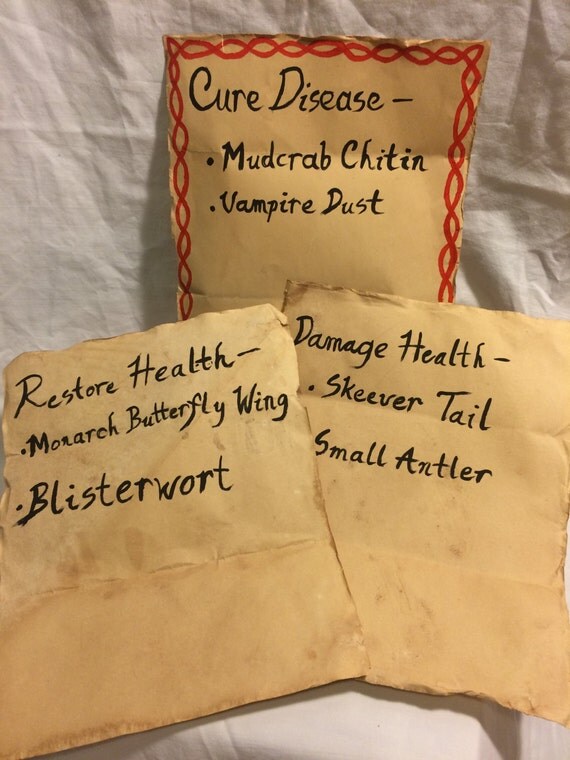 Cure Disease –
• Mudcrab Chitin
• Vampire Dust
Restore Health –
• Monarch Butterfly Wing
• Blisterwort
Damage Health –
• Skeever Tail
Small Antler